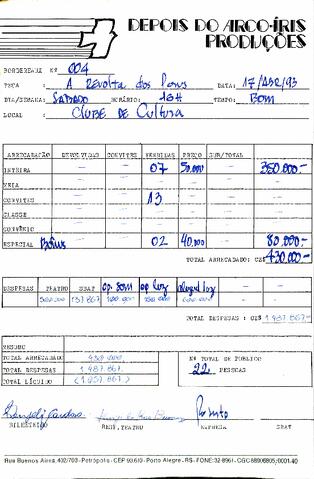 DEPOIS DO ARCO-ÍRIS
PRODUÇÕES
BORDEREAUX Nº 004
PEÇA : A REVOLTA dos Perus DATA: 17/ABR/93
DIA/SEMANA: SÁBADO HORÁRIO: 16H TEMPO: BOM
LOCAL : CLUBE DE CULTURA
ARRECADAÇÃO DEVOLVIDAS CONVITES VENDIDAS PREÇO SUB/TOTAL
INTEIRA — — 07 50.000 — 350.000.-
MEIA
CONVITES 13
CLASSE
CONVÊNIO
ESPECIAL Bônus 02 40.000 80.000.-
TOTAL ARRECADADO: CR$ 430.000.-
DESPESAS TEATRO SBAT op. som op. luz aluguel luz
500.000 137.867
TOTAL DESPESAS : CR$ 1.487.867.-
RESUMO
TOTAL ARRECADADO 430.000.
TOTAL DESPESAS 1.487.867
TOTAL LÍQUIDO (1.057.867)
Nº TOTAL DE PÚBLICO
22 PESSOAS
BILHETEIRO REPR.TEATRO EMPRESA SBAT
Rua Buenos Aires, 402/703 - Petrópolis - CEP 93.610 - Porto Alegre - RS - FONE: 32-8961 - CGC 88906805/0001-40